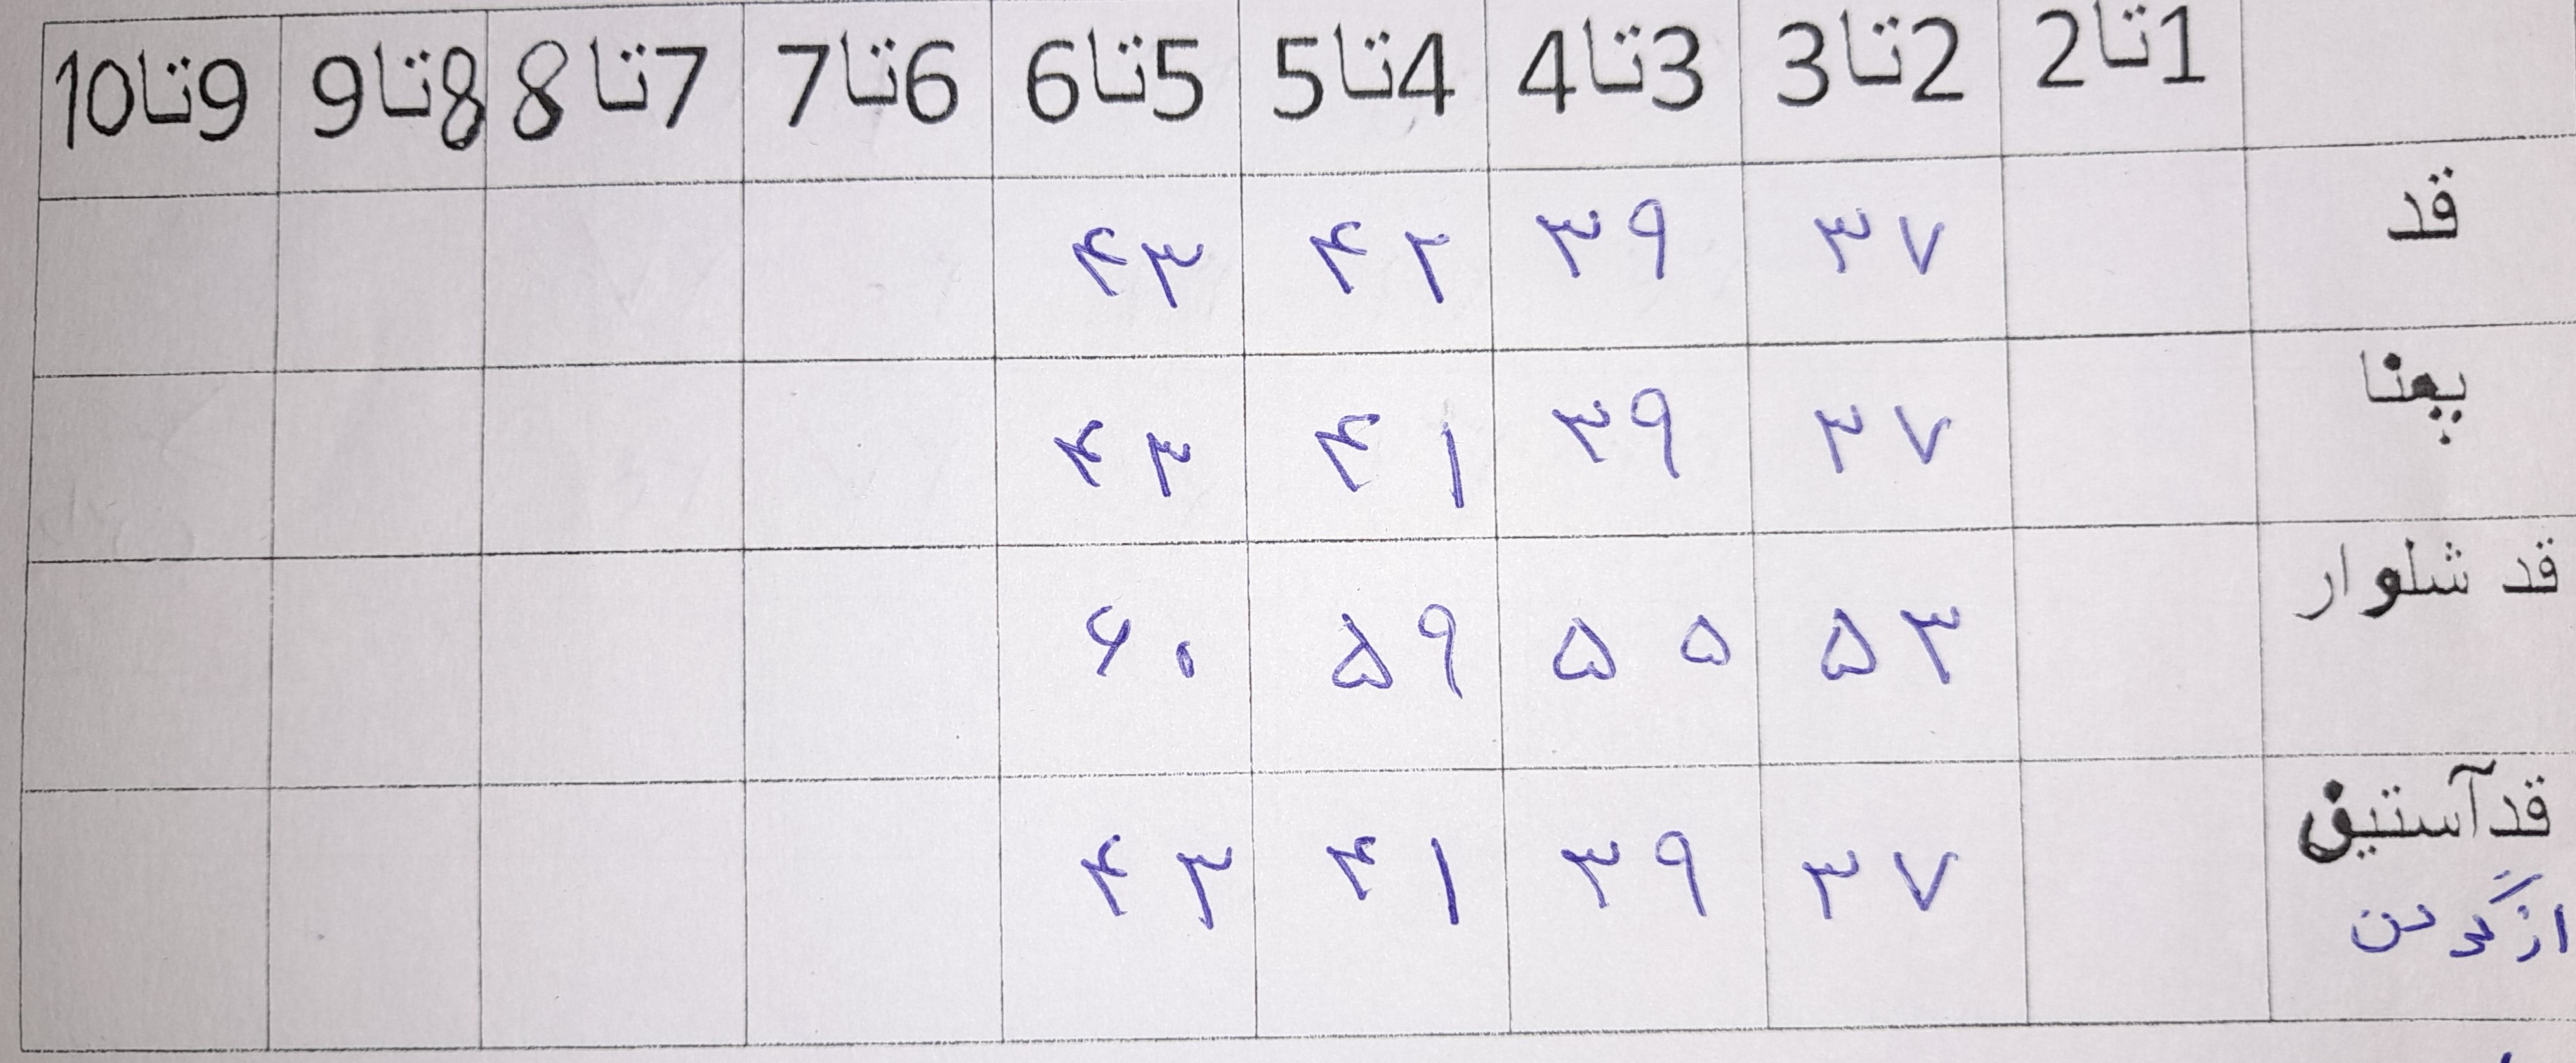 1تا2 2تا3 3تا4 4تا5 5تا6 6تا7 7تا8 8تا9 9تا10
قد ۳۷ ۳۹ ۴۲ ۴۳
پهنا ۳۷ ۳۹ ۴۱ ۴۳
قد شلوار ۵۳ ۵۵ ۵۹ ۶۰
قدآستین ۳۷ ۳۹ ۴۱ ۴۳
از گردن